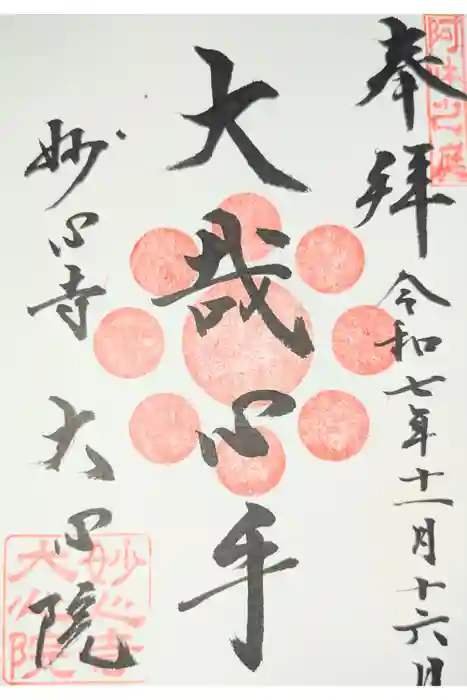 阿吽之庭
奉拝
令和七年十一月十六日
大哉心乎
妙心寺 大心院
妙心寺
大心院